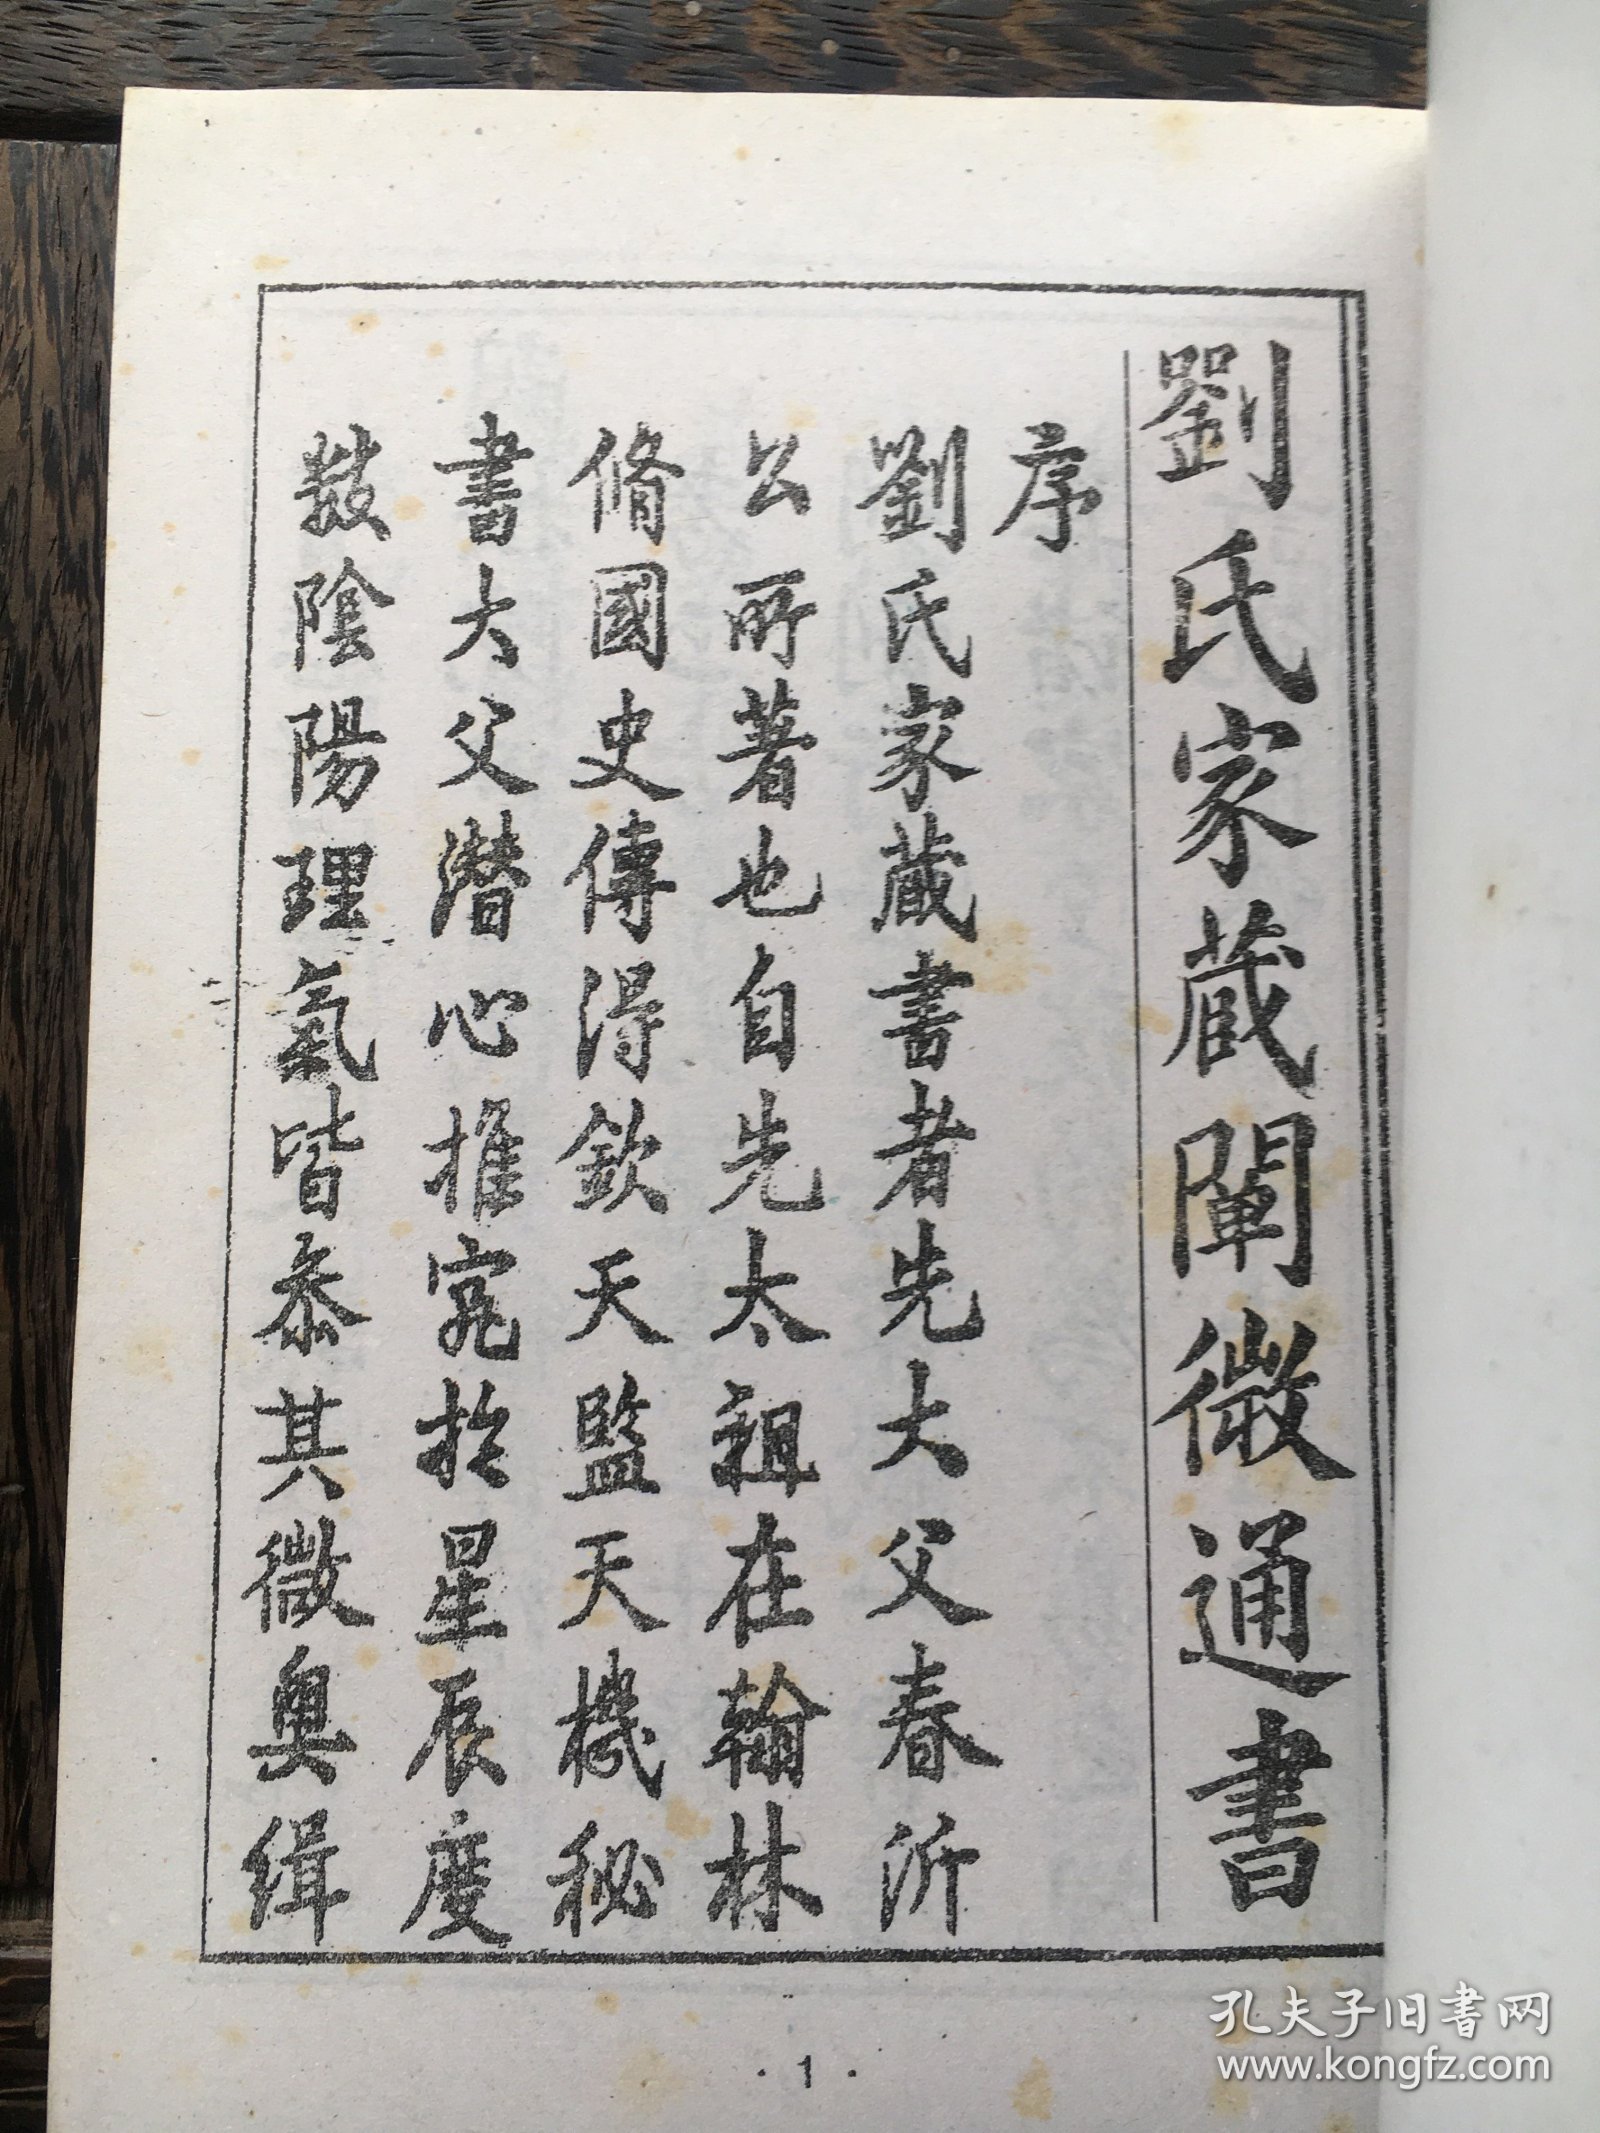 劉氏家藏闡微通書
序
劉氏家藏書者先大父春沂
公所著也自先太祖在翰林
脩國史傳得欽天監天機秘
書大父潛心推究於星辰度
數陰陽理氣皆叅其微奧缉
·1·
孔夫子旧书网
www.kongfz.com